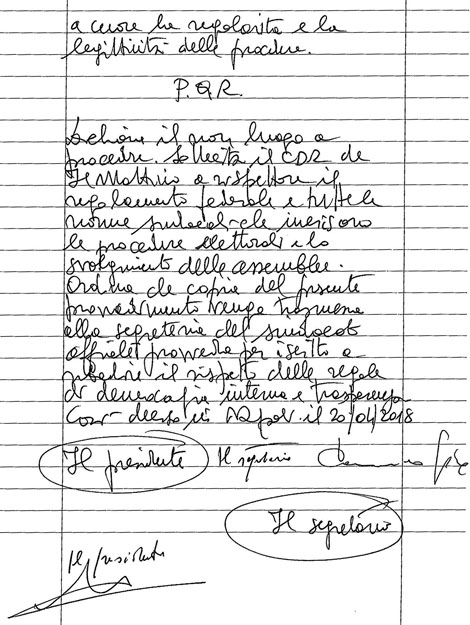 a cuore la regolarità e la
legittimità delle procedure.
P.Q.R.
Dichiara il non luogo a
procedere. Sollecita il CDR de
Il Mattino a rispettare il
regolamento federale e tutte le
norme sindacali che incidono
le procedure elettorali e lo
svolgimento delle assemblee.
Ordina che copia del presente
provvedimento venga trasmessa
alla segreteria del sindacato
affinché provveda per iscritto a
ribadire il rispetto delle regole
di democrazia interna e trasparenza
Così deciso in Napoli il 20/04/2018
Il presidente Il segretario
Il segretario
Il presidente